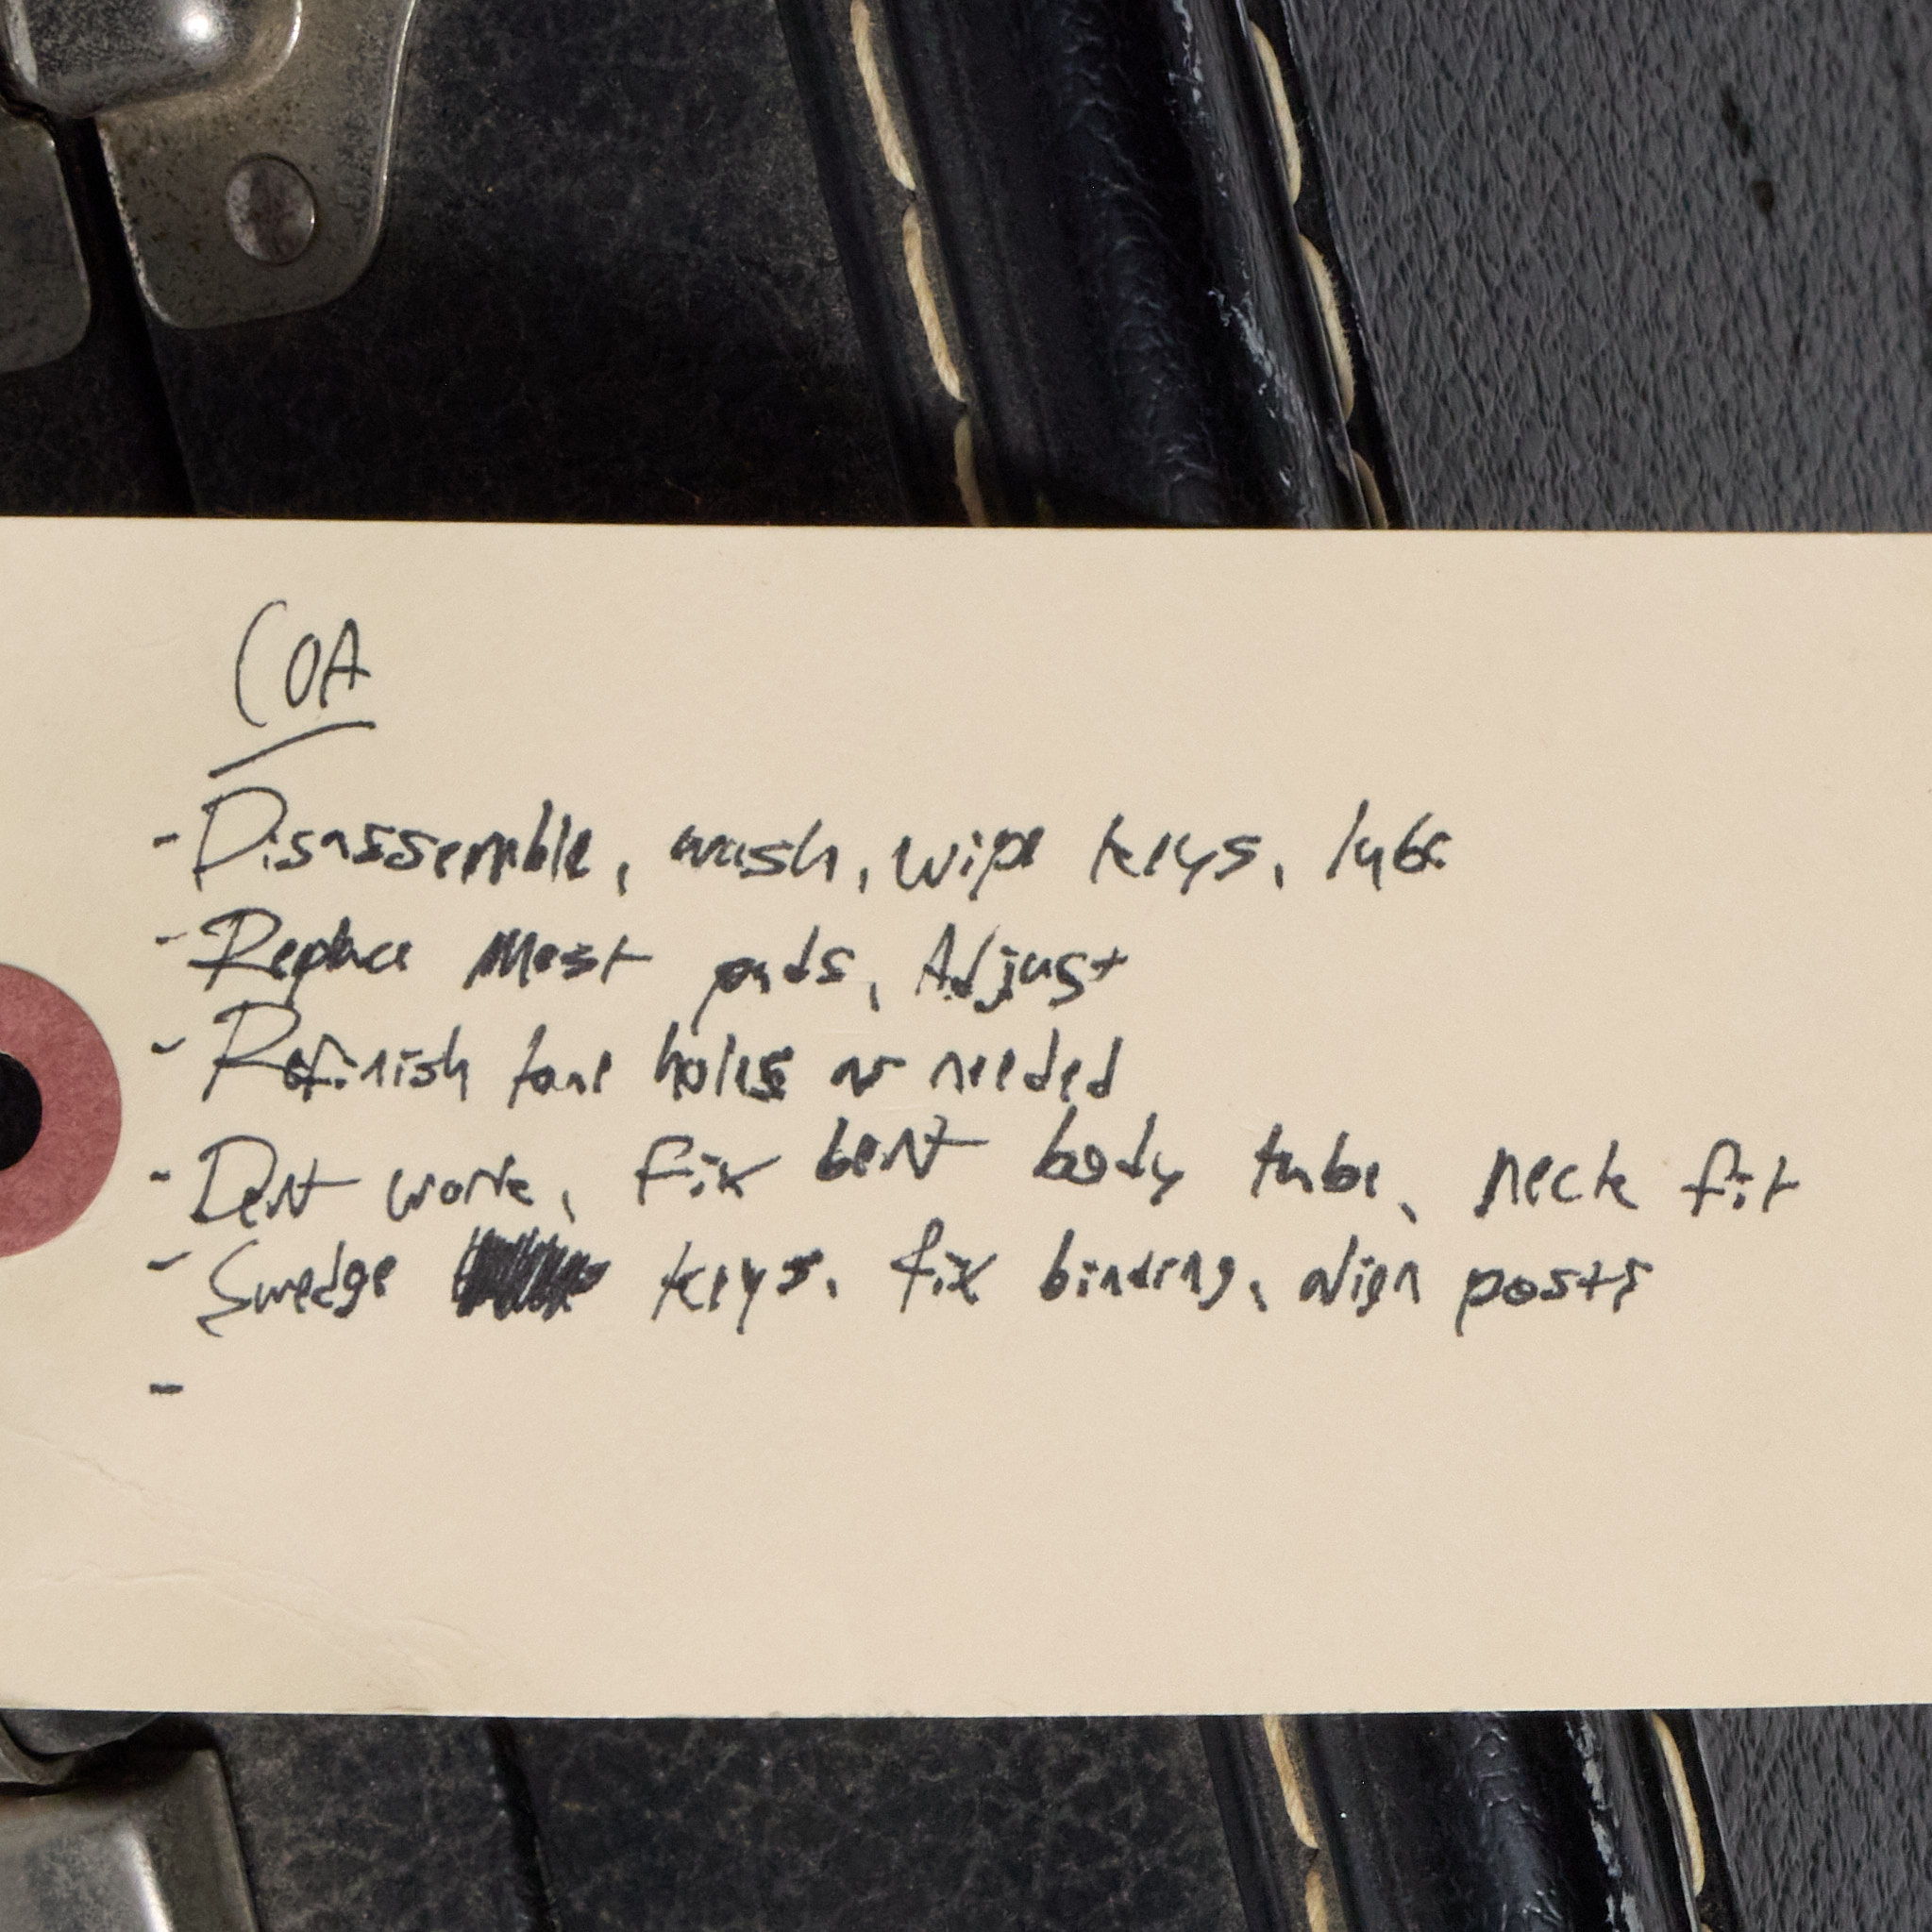 COA
- Disassemble, wash, wipe keys, lube
- Replace Most pads, Adjust
- Refinish tone holes as needed
- Dent work, Fix bent body tube, neck fit
- Swedge keys, fix binding, align posts
-